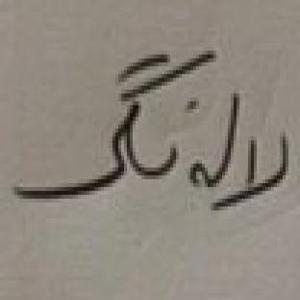 لالہ نگر